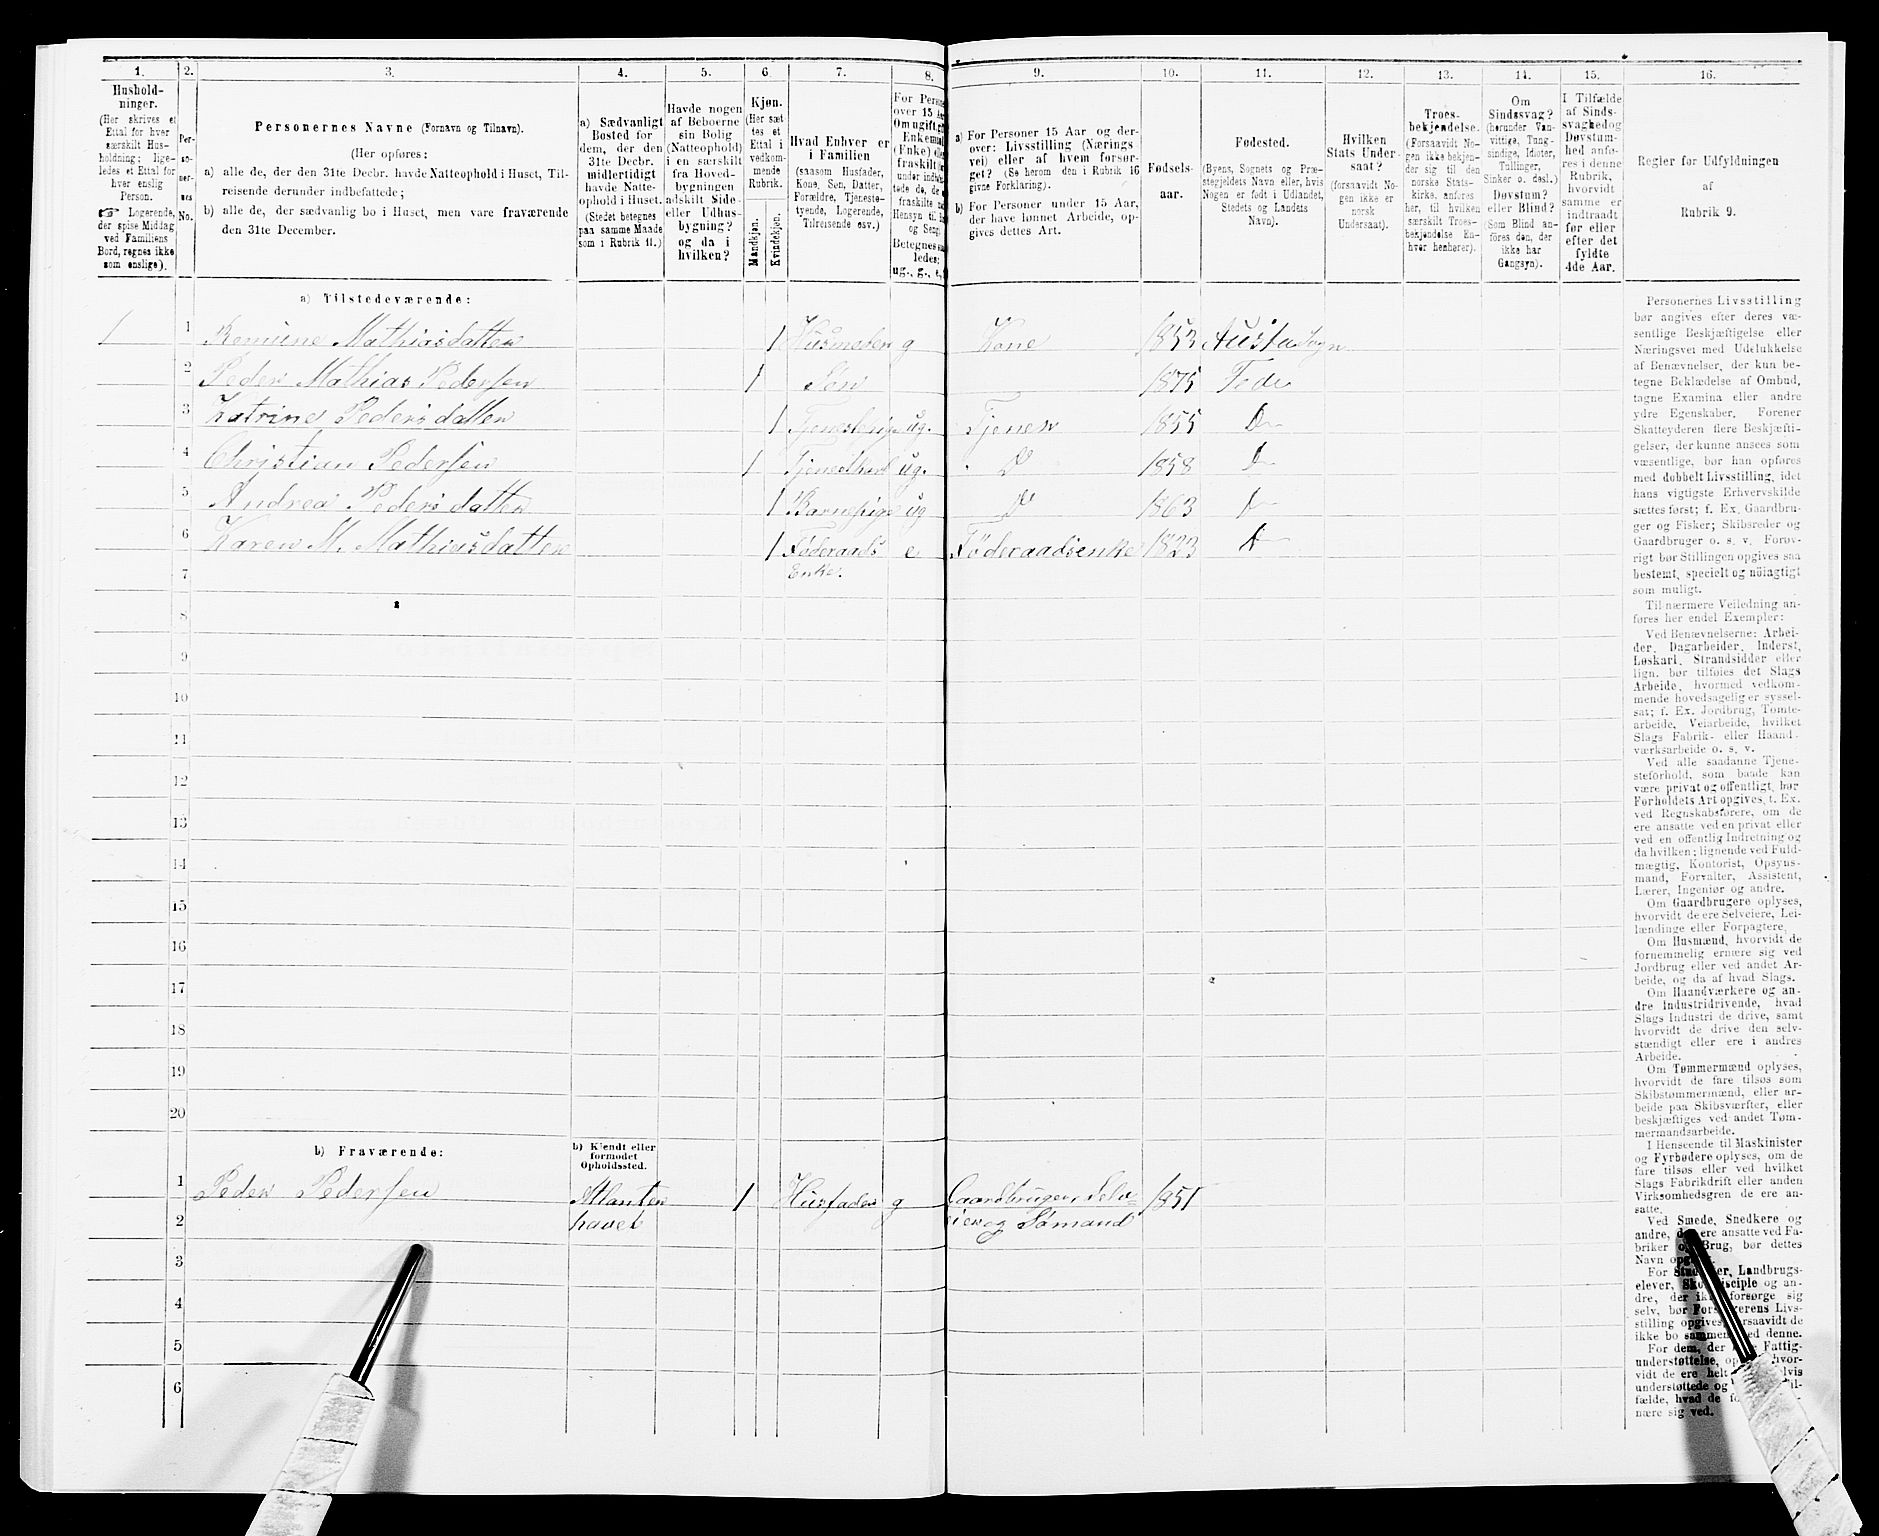 1. 2. 3. 4. 5. 6. 7. 8. 9. 10. 11. 12. 13. 14. 15. 16.
Hushold-
ninger.
(Her skrives et
Ettal for hver
særskilt Hus-
holdning; lige-
ledes et Ettal for
hver enslig
Person.
Logerende,
der spise Middag
ved Familiens
Bord, regnes ikke
som enslige).
Per-
so-
ner-
nes
No.
Personernes Navne (Fornavn og Tilnavn).
(Her opføres:
a) alle de, der den 31te Decbr. havde Natteophold i Huset, Til-
reisende derunder indbefattede;
b) alle de, der sædvanlig bo i Huset, men vare fraværende
den 31te December.
a) Sædvanligt
Bosted for
dem, der den
31te Decbr.
midlertidigt
havde Natte-
ophold i Huset.
(Stedet betegnes
paa samme Maade
som i Rubrik 11.)
Havde nogen
af Beboerne
sin Bolig
(Natteophold)
i en særskilt
fra Hoved-
bygningen
adskilt Side-
eller Udhus-
bygning?
og da i
hvilken?
Kjøn.
(Her sæt-
tes et
Ettal i
vedkom-
mende
Rubrik.
Mandkjøn.
Kvindekjøn.
Hvad Enhver er
i Familien
(saasom Husfader,
Kone, Søn, Datter,
Forældre, Tjeneste-
tyende, Logerende,
Tilreisende osv.)
For Perso
over 15 Aar
Om ugift, g
Enkema
(Enke) el
fraskilt
Betegnes
ledes:
ug., g., e,
a) For Personer 15 Aar og der-
over: Livsstilling (Nærings
vei) eller af hvem forsør-
get? (Se herom den i Rubrik 16
givne Forklaring).
b) For Personer under 15 Aar,
der have lønnet Arbeide, op-
gives dettes Art.
Fødsels-
aar.
Fødested.
(Byens, Sognets og Præ-
stegjeldets Navn eller, hvis
Nogen er født i Udlandet,
Stedets og Landets
Navn).
Hvilken
Stats Under-
saat?
(forsaavidt No-
gen ikke er
norsk
Undersaat).
Troes-
bekjendelse.
(Forsaavidt No-
gen ikke bekjen-
der sig til den
norske Stats-
kirke, anføres
her, til hvilken
særskilt Troes-
bekjendelse En-
hver henhører).
Om
Sindssvag?
(herunder Van-
vittige, Tung-
sindige, Idioter,
Tullinger,
Sinker o. desl.)
Døvstum?
eller Blind?
(Som Blind an-
føres den, der
ikke har
Gangsyn).
I Tilfælde
af Sinds-
svaghed og
Døvstum-
hed anfø-
res i denne
Rubrik,
hvorvidt
samme er
indtraadt
før eller
efter det
fyldte
4de Aar.
Regler for Udfyldningen
af
Rubrik 9.
a) Tilstedeværende:
1 1 Mathiasdatter 1 g Kone 1853
2 Peder Mathias Pedersen 1 Søn 1875 Fede
3 Katrine Pedersdatter 1 ug. Tjener 1855 Do
4 Christian Pedersen 1 ug. Do 1858 Do
5 Andrea Pedersdatter 1 Barnepige ug Do 1863 Do
6 Karen M. Mathiasdatter 1 Føderaads e Føderaadsenke 1823 Do
7 Enke.
8
9
10
11
12
13
14
15
16
17
18
19
20
b) Fraværende:
b) Kjendt eller
formodet
Opholdssted.
1 Peder Pedersen Atlanter 1 Husfader g Gaardbruger, Selv- 1851
2 havet eier og Sømand
3
4
5
6
Personernes Livsstilling
bør angives efter deres væ-
sentlige Beskjæftigelse eller
Næringsvei med Udelukkelse
af Benævnelser, der kun be-
tegne Beklædelse af Ombud,
tagne Examina eller andre
ydre Egenskaber. Forener
Skatteyderen flere Beskjæfti-
gelser, der kunne ansees som
væsentlige, bør han opføres
med dobbelt Livsstilling, idet
hans vigtigste Erhvervskilde
sættes først; f. Ex. Gaardbru-
ger og Fisker; Skibsreder og
Gaardbruger o. s. v. Forøv-
rigt bør Stillingen opgives saa
bestemt, specielt og nöiagtigt
som muligt.
Til nærmere Veiledning an-
føres her endel Exempler:
Ved Benævnelserne: Arbei-
der, Dagarbeider, Inderst,
Løskarl, Strandsidder eller
lign. bør tilføies det Slags
Arbeide, hvormed vedkom-
mende hovedsagelig er syssel-
sat; f. Ex. Jordbrug, Tomte-
arbeide, Veiarbeide, hvilket
Slags Fabrik- eller Haand-
værksarbeide o. s. v.
Ved alle saadanne Tjene-
steforhold, som baade kan
være privat og offentligt, bør
Forholdets Art opgives, t. Ex.
ved Regnskabsførere, om de
ere ansatte ved en privat eller
ved en offentlig Indretning og
da hvilken; lignende ved Fuld-
mægtig, Kontorist, Opsyns-
mand, Forvalter, Assistent,
Lærer, Ingeniør og andre.
Om Gaardbrugere oplyses,
hvorvidt de ere Selveiere, Lei-
lændinge eller Forpagtere,
Om Husmænd, hvorvidt de
fornemmelig ernære sig ved
Jordbrug eller ved andet Ar-
beide, og da af hvad Slags.
Om Haandværkere og an-
dre Industridrivende, hvad
Slags Industri de drive, samt
hvorvidt de drive den selv-
stændigt eller ere i andres
Arbeide.
Om Tømmermænd oplyses,
hvorvidt de fare tilsøs som
Skibstømmermænd, eller ar-
beide paa Skibsværfter, eller
beskjæftiges ved andet Tøm-
mermandsarbeide.
I Henseende til Maskinister
og Fyrbødere oplyses, om de
fare tilsøs eller ved hvilket
Slags Fabrikdrift eller anden
Virksomhedsgren de ere an-
satte.
Ved Smede, Snedkere og
andre, de ere ansatte ved Fa-
briker og Brug, bør dettes
Navn
For Landbrugs-
elever, og an-
dre, der ikke forsørge sig
selv, bør Forsørgerens Livs-
stilling opgives, forsaavidt de
ikke bo sammen med denne.
For dem, der Fattig-
understøttelse, hvor-
vidt de ere helt
understøttede og
fælde, hvad de
nære sig ved.